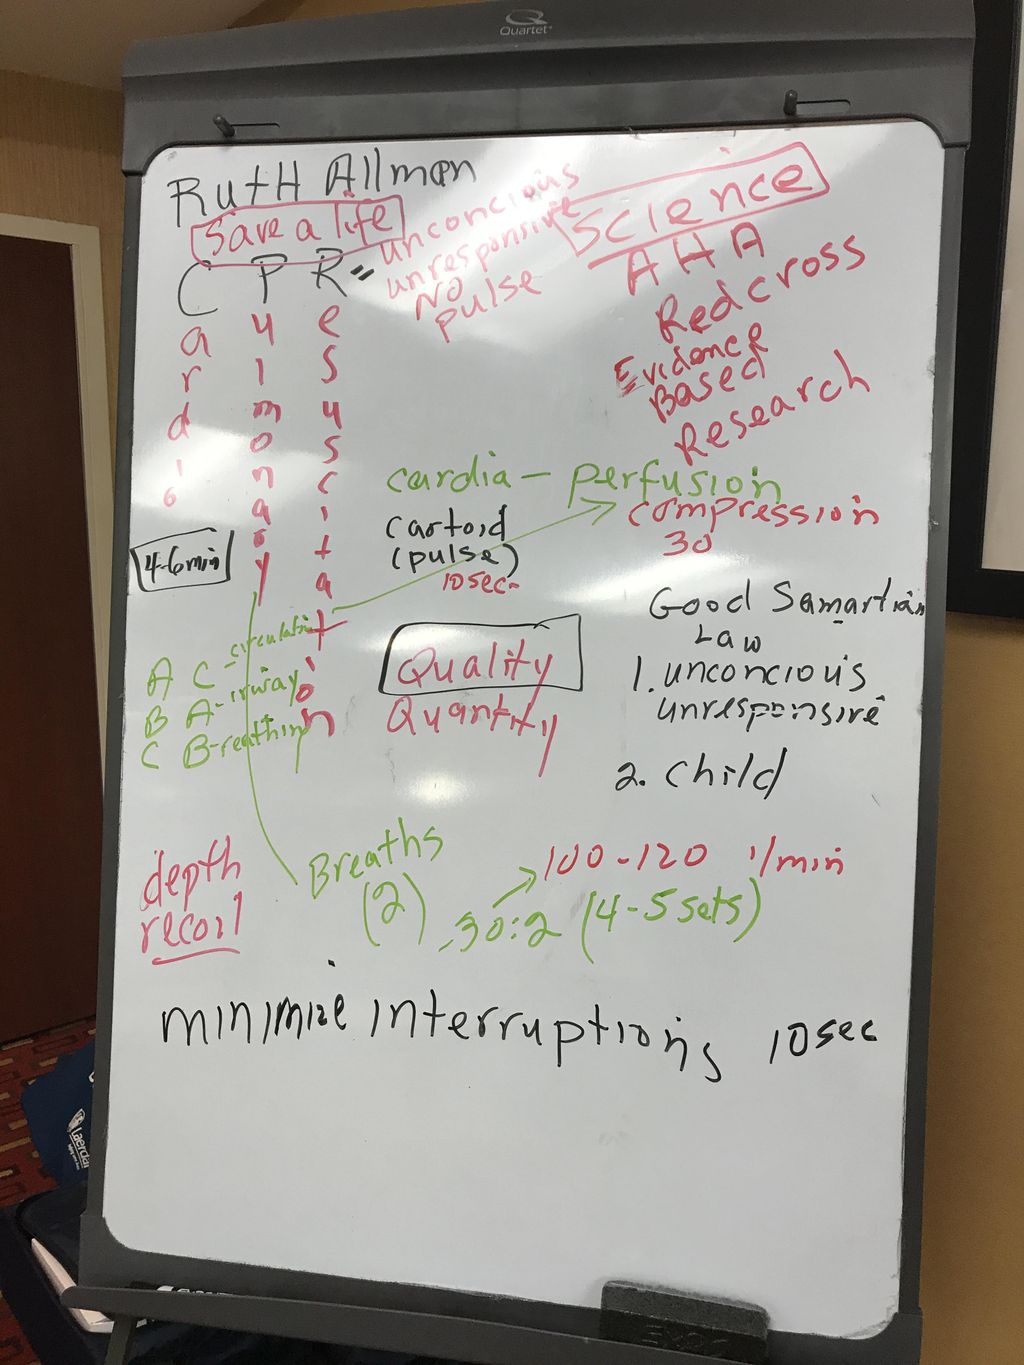 Quartet
RUTH Allman
Save a life
Science
C P R = unconcious
unresponsive
No
pulse
AHA
Redcross
Evidence
Based
Research
Cardio
Pulmonary
Resuscitation
cardia - perfusion
compression
30
cartoid
(pulse)
10sec
4-6min
Good Samartian
Law
1. unconcious
unresponsive
2. child
A C-irculation
B A-irway
C B-reathin
Quality
Quantity
depth
recoil
Breaths
(2)
100-120 /min
30:2 (4-5 sets)
minimize interruptions 10sec
Laerdal